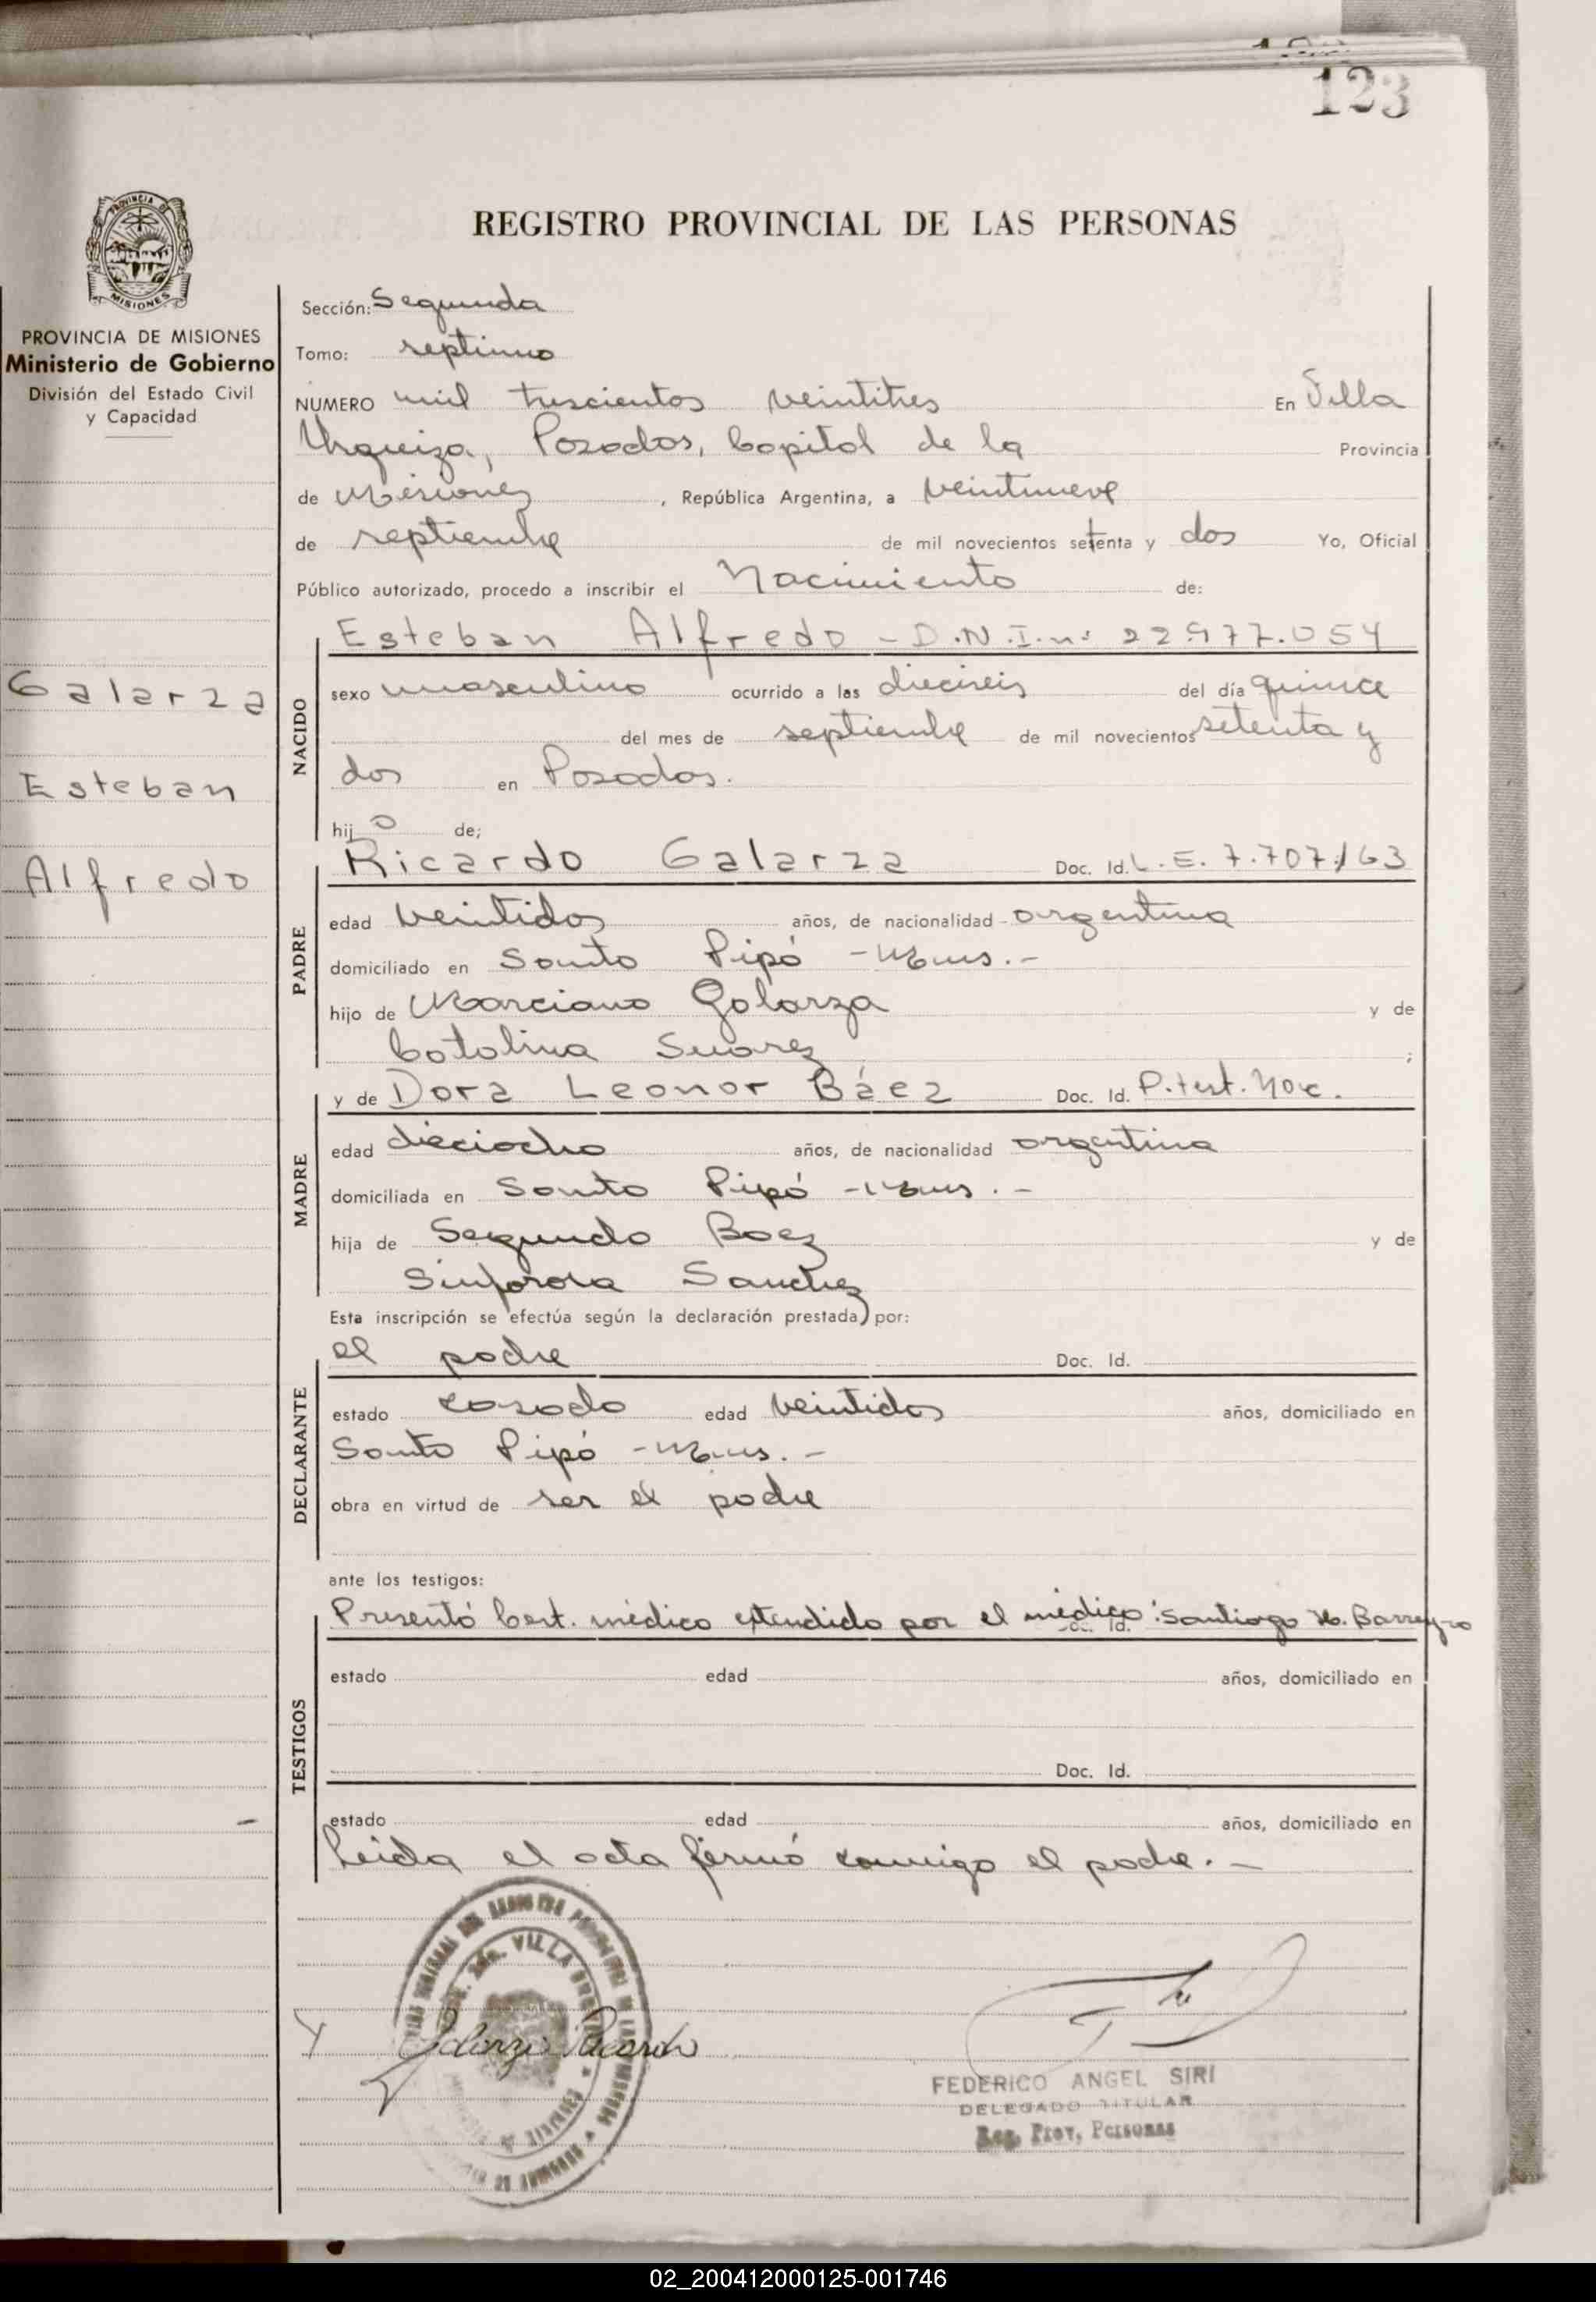 123
REGISTRO PROVINCIAL DE LAS PERSONAS
PROVINCIA DE MISIONES
Ministerio de Gobierno
División del Estado Civil
y Capacidad
Galarza
Esteban
Alfredo
Sección: Segunda
Tomo: septimo
NUMERO mil trescientos veintitres En Villa
Urquiza, Posadas, Capital de la Provincia
de Misiones, República Argentina, a veintinueve
de septiembre de mil novecientos setenta y dos Yo, Oficial
Público autorizado, procedo a inscribir el Nacimiento de:
NACIDO
Esteban Alfredo - D.N.I.nº 22.977.054
sexo masculino ocurrido a las dieciseis del día quince
del mes de septiembre de mil novecientos setenta y
dos en Posadas.
hijo de;
PADRE
Ricardo Galarza Doc. Id. L.E. 7.707.163
edad veintidos años, de nacionalidad argentina
domiciliado en Santo Pipó - Mnes. -
hijo de Marciano Galarza y de
Catalina Suarez ;
MADRE
y de Dora Leonor Báez Doc. Id. P. test. Nac.
edad dieciocho años, de nacionalidad argentina
domiciliada en Santo Pipó - Mnes. -
hija de Segundo Baez y de
Sinforosa Sanchez
Esta inscripción se efectúa según la declaración prestada por:
DECLARANTE
el padre Doc. Id.
estado casado edad veintidos años, domiciliado en
Santo Pipó - Mnes. -
obra en virtud de ser el padre
ante los testigos:
TESTIGOS
Presentó Cert. médico extendido por el médico: Santiago H. Barreyro
Doc. Id.
estado edad años, domiciliado en
Doc. Id.
estado edad años, domiciliado en
Leida el acta firmó conmigo el padre. -
Galarza Ricardo
FEDERICO ANGEL SIRI
DELEGADO TITULAR
Reg. Prov. Personas
02_200412000125-001746